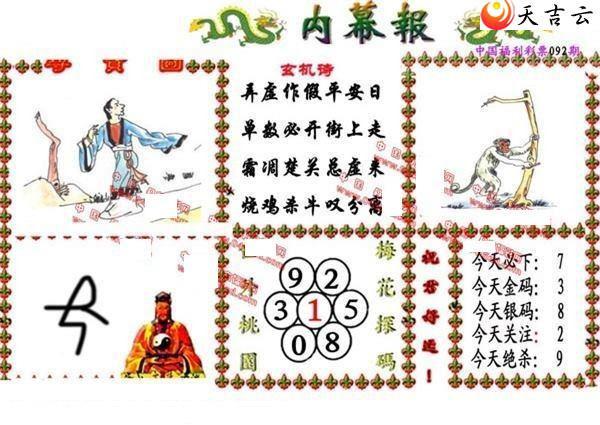 内幕報
天吉云
中国福利彩票092期
字實圖
玄机诗
弄虚作假平安日
单数必开街上走
霜凋楚关总虚来
烧鸡杀牛叹分离
外桃園
92
315
08
梅花探碼
祝君好运！
今天必下：7
今天金码：3
今天银码：8
今天关注：2
今天绝杀：9